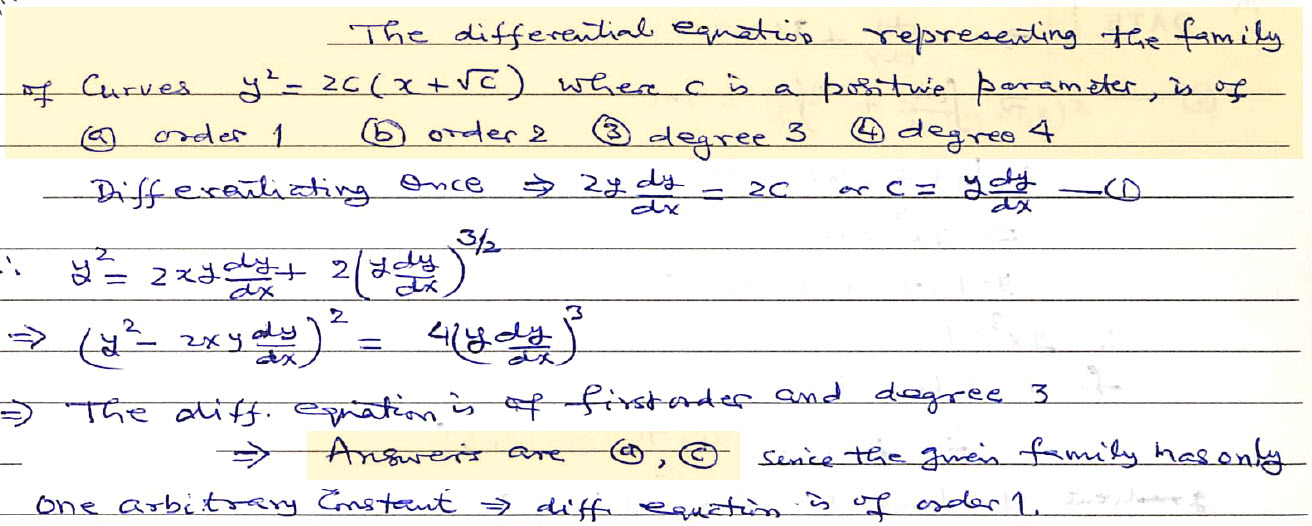 The differential equation representing the family
of Curves y² = 2c(x+√c) where c is a positive parameter, is of
ⓐ order 1 ⓑ order 2 ③ degree 3 ④ degree 4
Differentiating Once ⇒ 2y dy/dx = 2c or c = y dy/dx —①
∴ y² = 2xy dy/dx + 2(y dy/dx)^3/2
⇒ (y² - 2xy dy/dx)² = 4(y dy/dx)³
⇒ The diff. equation is of first order and degree 3
⇒ Answers are ⓐ, ⓒ since the given family has only
one arbitrary Constant ⇒ diff equation is of order 1.